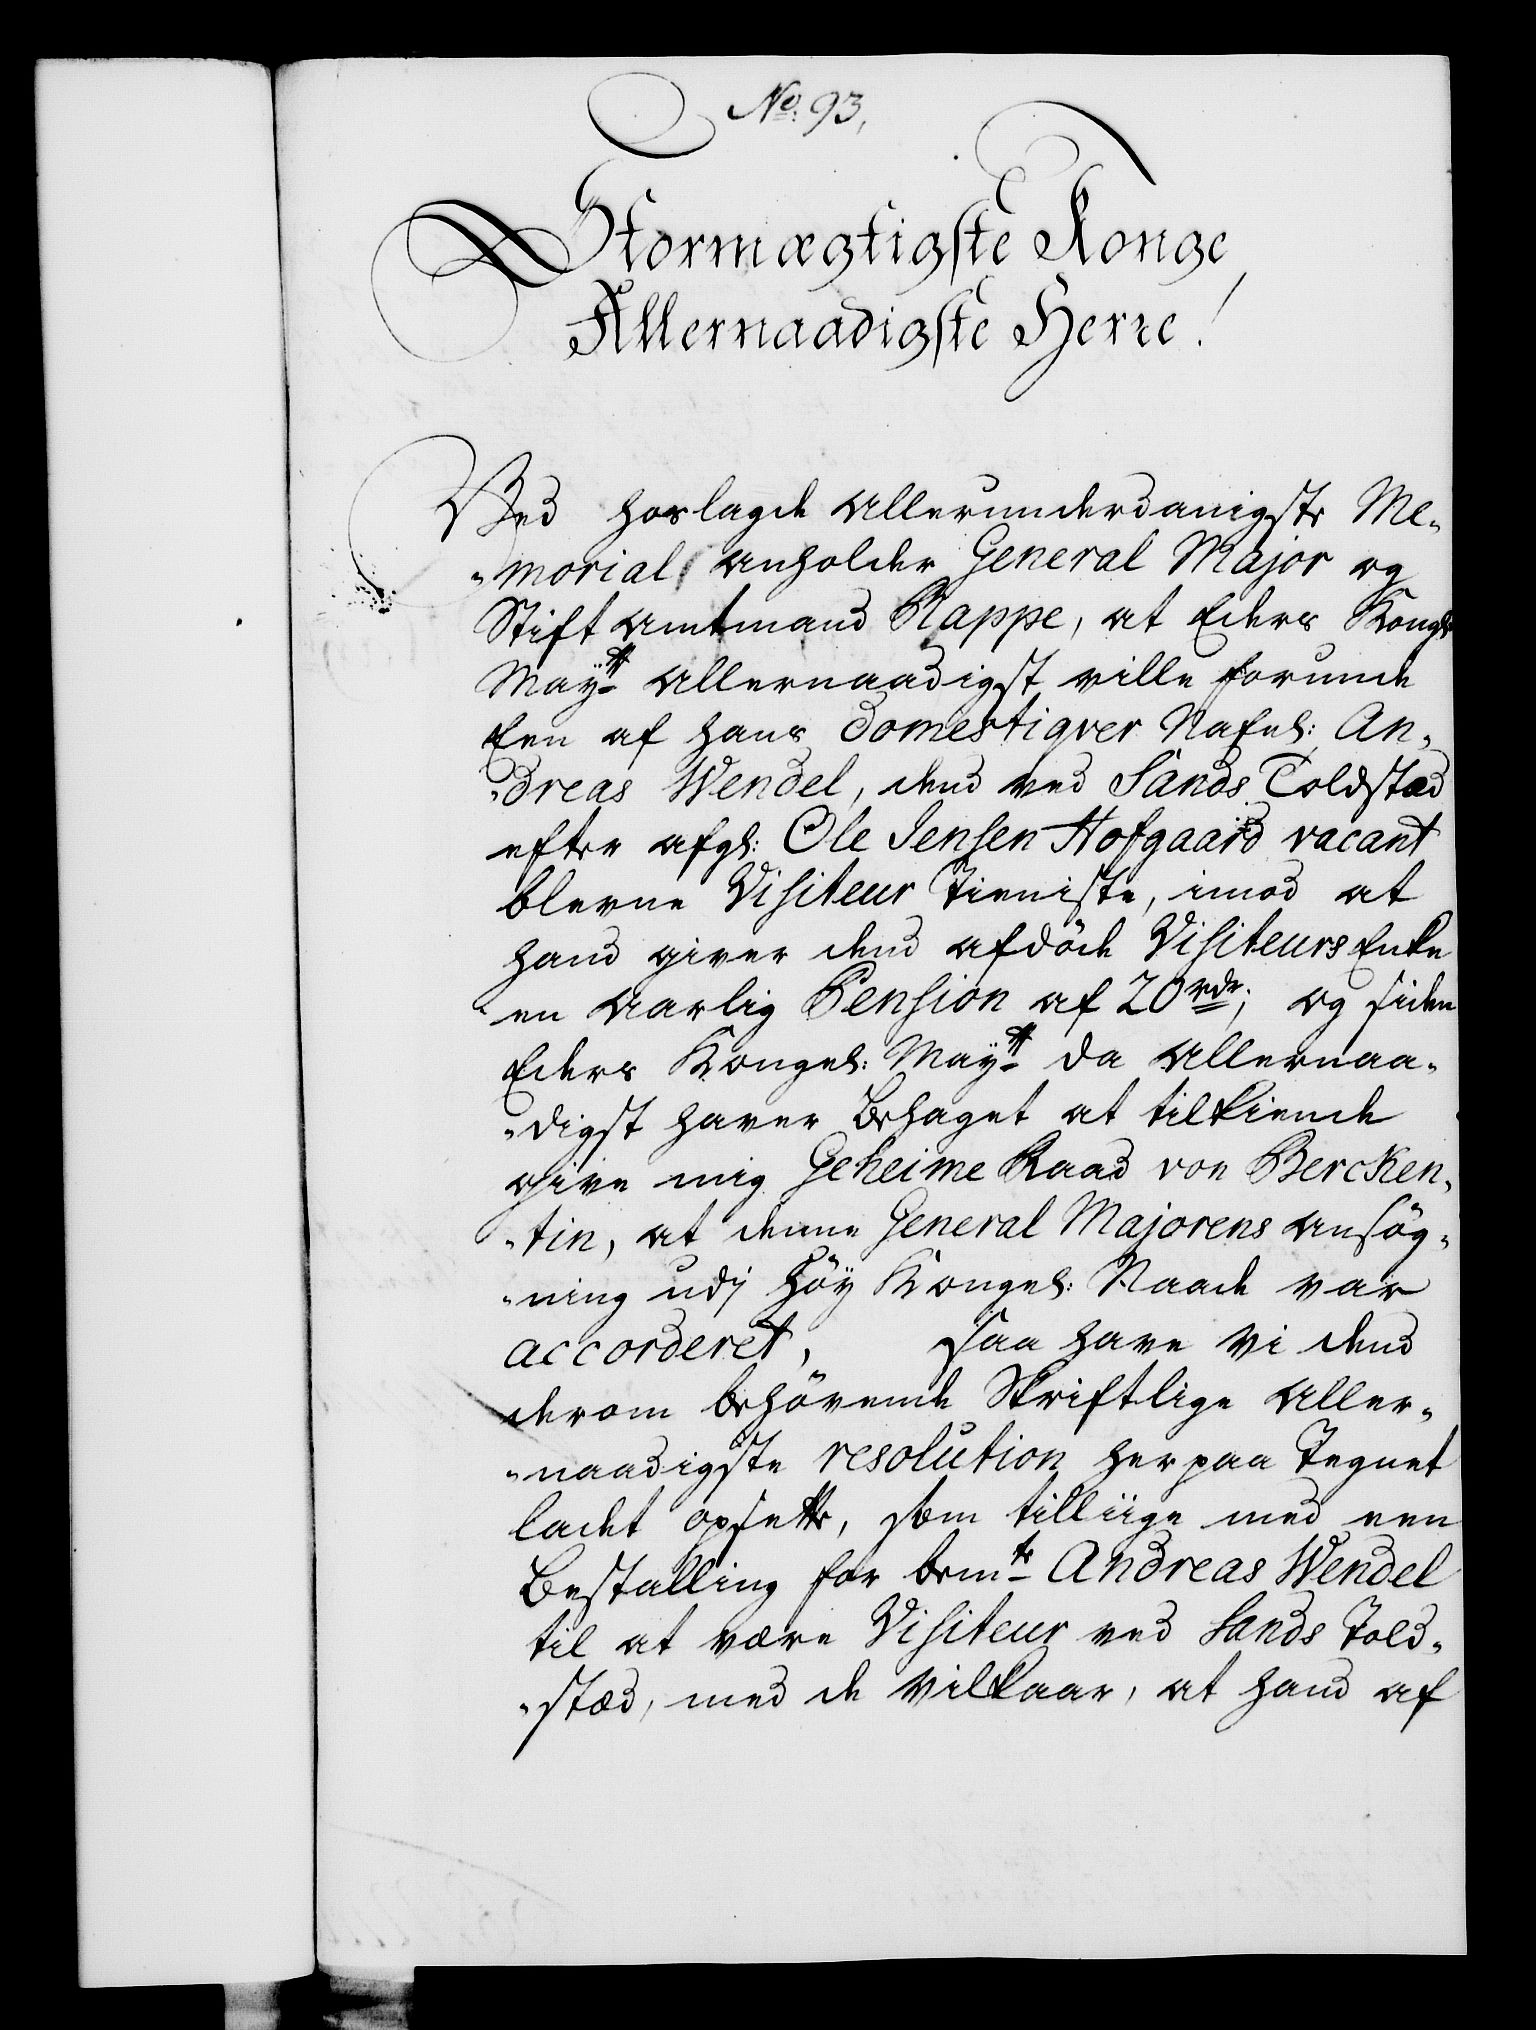 No: 93,
Stormægtigste Konge,
Allernaadigste Herre!
Ved hoslagde allerunderdanigste Me-
-morial anholder General Major og
Stiftamtmand Rappe, at Eders Kongl:
Mayts allernaadigst ville forunde
Een af hans Domestiqver Nafnl: An-
-dreas Wendel, dend ved Sands Toldstæd
efter afgl: Ole Jensen Hofgaard vacant
blevne Visiteur Tieniste, imod at
hand giver dend afdöde Visiteurs Enke
en aarlig Pension af 20 rdr; og siden
Eders Kongel: Mayts da allernaa-
-digst haver behaget at tilkiende
give mig Geheime Raad von Bercken-
-tin, at denne General Majorens ansög-
-ning udj Höy Kongel: Naade var
accorderet, Saa have vi dend
derom behövende Skriftlige aller-
-naadigste resolution her paa Tegnet
ladet opsette, som tilliige med een
Bestalling for bemte Andreas Wendel
til at være Visiteur ved Sands Told-
-stæd, med de vilkaar, at hand af